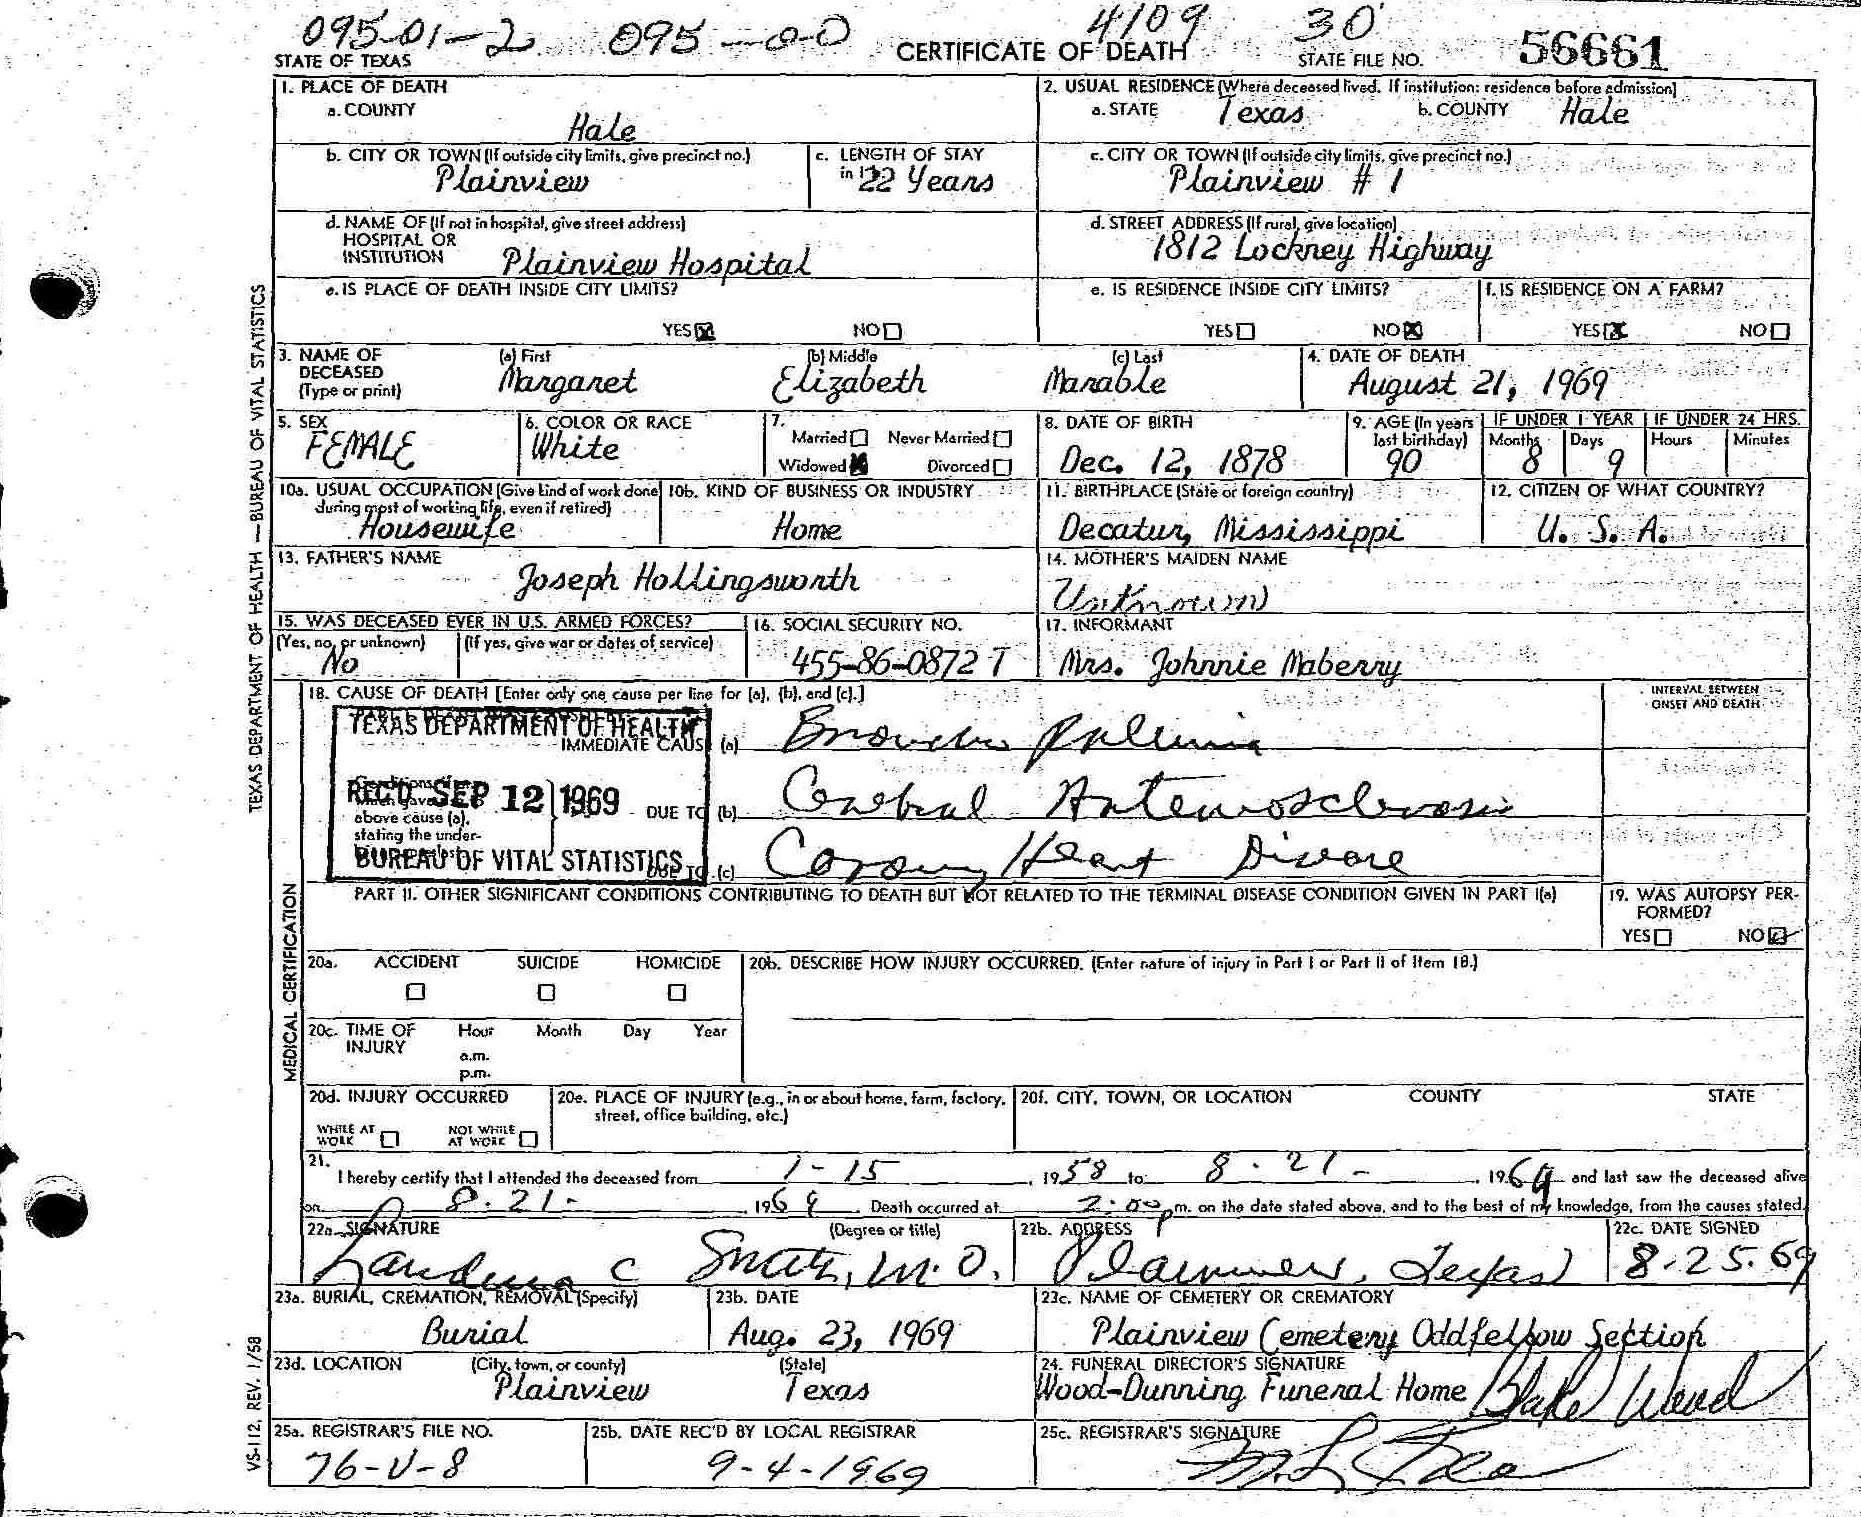 095-01-2 095-00 4109 30
STATE OF TEXAS CERTIFICATE OF DEATH STATE FILE NO. 56661
1. PLACE OF DEATH
a. COUNTY
Hale
2. USUAL RESIDENCE (Where deceased lived. If institution: residence before admission)
a. STATE Texas b. COUNTY Hale
b. CITY OR TOWN (If outside city limits, give precinct no.)
Plainview
c. LENGTH OF STAY
in 22 Years
c. CITY OR TOWN (If outside city limits, give precinct no.)
Plainview # 1
d. NAME OF (If not in hospital, give street address)
HOSPITAL OR
INSTITUTION Plainview Hospital
d. STREET ADDRESS (If rural, give location)
1812 Lockney Highway
e. IS PLACE OF DEATH INSIDE CITY LIMITS?
YES NO
e. IS RESIDENCE INSIDE CITY LIMITS?
YES NO
f. IS RESIDENCE ON A FARM?
YES NO
3. NAME OF DECEASED (Type or print)
(a) First (b) Middle (c) Last
Margaret Elizabeth Marable
4. DATE OF DEATH
August 21, 1969
5. SEX
FEMALE
6. COLOR OR RACE
White
7.
Married Never Married
Widowed Divorced
8. DATE OF BIRTH
Dec. 12, 1878
9. AGE (In years last birthday)
90
IF UNDER 1 YEAR
Months Days
8 9
IF UNDER 24 HRS.
Hours Minutes
10a. USUAL OCCUPATION (Give kind of work done during most of working life, even if retired)
Housewife
10b. KIND OF BUSINESS OR INDUSTRY
Home
11. BIRTHPLACE (State or foreign country)
Decatur, Mississippi
12. CITIZEN OF WHAT COUNTRY?
U. S. A.
13. FATHER'S NAME
Joseph Hollingsworth
14. MOTHER'S MAIDEN NAME
Unknown
15. WAS DECEASED EVER IN U.S. ARMED FORCES?
(Yes, no, or unknown) (If yes, give war or dates of service)
No
16. SOCIAL SECURITY NO.
455-86-0872 T
17. INFORMANT
Mrs. Johnnie Maberry
18. CAUSE OF DEATH [Enter only one cause per line for (a), (b), and (c).]
INTERVAL BETWEEN
ONSET AND DEATH
TEXAS DEPARTMENT OF HEALTH
REC'D SEP 12 1969
BUREAU OF VITAL STATISTICS
IMMEDIATE CAUSE (a) Broncho
above cause (a),
stating the under-
DUE TO (b) Cerebral Arteriosclerosis
DUE TO (c) Coronary Heart Disease
PART II. OTHER SIGNIFICANT CONDITIONS CONTRIBUTING TO DEATH BUT NOT RELATED TO THE TERMINAL DISEASE CONDITION GIVEN IN PART I(a)
19. WAS AUTOPSY PER-
FORMED?
YES NO
20a. ACCIDENT SUICIDE HOMICIDE
20b. DESCRIBE HOW INJURY OCCURRED. (Enter nature of injury in Part I or Part II of Item 18.)
20c. TIME OF INJURY Hour Month Day Year
a.m.
p.m.
20d. INJURY OCCURRED
WHILE AT WORK NOT WHILE AT WORK
20e. PLACE OF INJURY (e.g., in or about home, farm, factory,
street, office building, etc.)
20f. CITY, TOWN, OR LOCATION COUNTY STATE
21.
I hereby certify that I attended the deceased from 1-15 1958 to 8-21- 1969 and last saw the deceased alive
on 8-21- 1969. Death occurred at 2:00 pm. on the date stated above, and to the best of my knowledge, from the causes stated.
22a. SIGNATURE (Degree or title)
C Smith, M.D.
22b. ADDRESS
Plainview, Texas
22c. DATE SIGNED
8-25-69
23a. BURIAL, CREMATION, REMOVAL (Specify)
Burial
23b. DATE
Aug. 23, 1969
23c. NAME OF CEMETERY OR CREMATORY
Plainview Cemetery Oddfellow Section
23d. LOCATION (City, town, or county) (State)
Plainview Texas
24. FUNERAL DIRECTOR'S SIGNATURE
Wood-Dunning Funeral Home Blake Wood
25a. REGISTRAR'S FILE NO.
76-V-8
25b. DATE REC'D BY LOCAL REGISTRAR
9-4-1969
25c. REGISTRAR'S SIGNATURE
TEXAS DEPARTMENT OF HEALTH — BUREAU OF VITAL STATISTICS
MEDICAL CERTIFICATION
VS-112, REV. 1/58